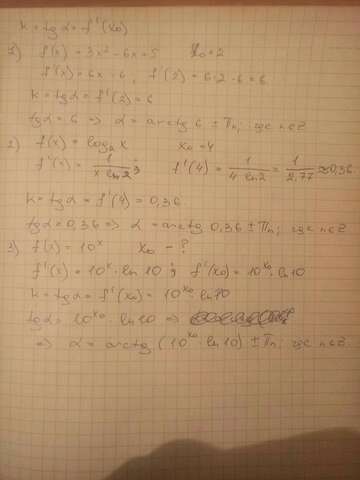 k = tg α = f'(x₀)
1) f(x) = 3x² - 6x + 5 x₀ = 2
f'(x) = 6x - 6, f'(2) = 6·2 - 6 = 6
k = tg α = f'(2) = 6
tg α = 6 => α = arctg 6 ± πn; где n∈Z
2) f(x) = log₂ x x₀ = 4
f'(x) = 1/(x ln 2); f'(4) = 1/(4 ln 2) = 1/2,77 ≈ 0,36
k = tg α = f'(4) = 0,36
tg α = 0,36 => α = arctg 0,36 ± πn; где n∈Z
3) f(x) = 10ˣ x₀ - ?
f'(x) = 10ˣ · ln 10; f'(x₀) = 10ˣ⁰ · ln 10
k = tg α = f'(x₀) = 10ˣ⁰ · ln 10
tg α = 10ˣ⁰ · ln 10 =>
=> α = arctg (10ˣ⁰ · ln 10) ± πn; где n∈Z